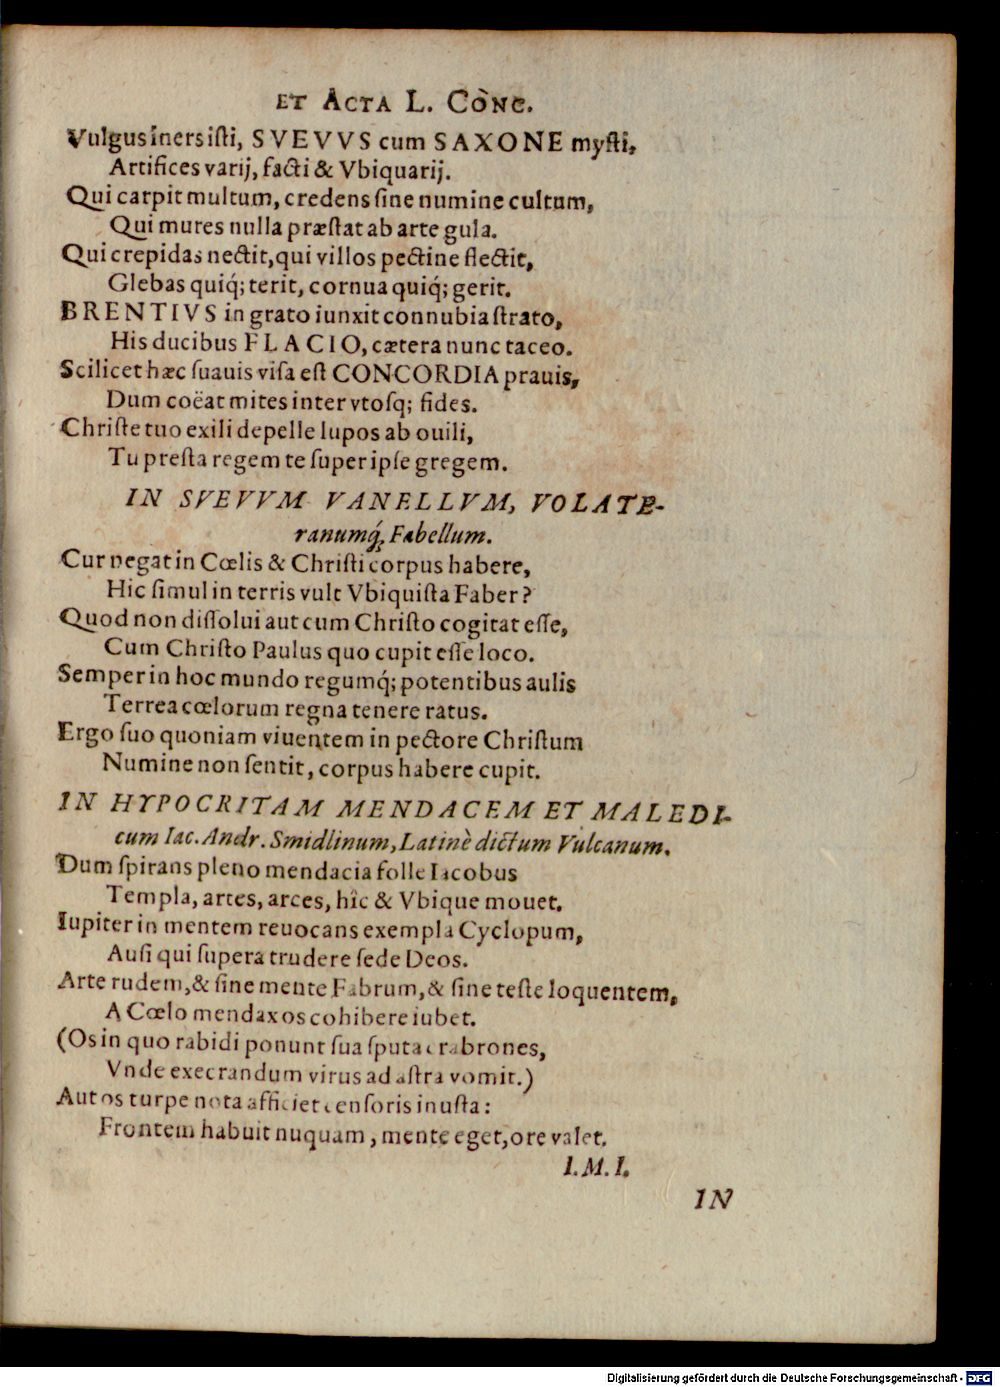 ET ACTA L. CONC.
Vulgus iners isti, SVEVVS cum SAXONE mysti,
Artifices varij, facti & Vbiquarij.
Qui carpit multum, credens sine numine cultum,
Qui mures nulla præstat ab arte gula.
Qui crepidas nectit, qui villos pectine flectit,
Glebas quiq́; terit, cornua quiq́; gerit.
BRENTIVS in grato iunxit connubia strato,
His ducibus FLACIO, cætera nunc taceo.
Scilicet hæc suauis visa est CONCORDIA prauis,
Dum coëat mites inter vtosq; fides.
Christe tuo exili depelle lupos ab ouili,
Tu presta regem te super ipse gregem.
IN SVEVVM VANELLVM, VOLATE-
ranumq́; Fabellum.
Cur negat in Cœlis & Christi corpus habere,
Hic simul in terris vult Vbiquista Faber?
Quod non dissolui aut cum Christo cogitat esse,
Cum Christo Paulus quo cupit esse loco.
Semper in hoc mundo regumq́; potentibus aulis
Terrea cœlorum regna tenere ratus.
Ergo suo quoniam viuentem in pectore Christum
Numine non sentit, corpus habere cupit.
IN HYPOCRITAM MENDACEM ET MALEDI-
cum Iac. Andr. Smidlinum, Latinè dictum Vulcanum.
Dum spirans pleno mendacia folle Iacobus
Templa, artes, arces, hîc & Vbique mouet.
Iupiter in mentem reuocans exempla Cyclopum,
Ausi qui supera trudere sede Deos.
Arte rudem, & sine mente Fabrum, & sine teste loquentem,
A Cœlo mendax os cohibere iubet.
(Os in quo rabidi ponunt sua sputa crabrones,
Vnde execrandum virus ad astra vomit.)
Aut os turpe nota afficiet censoris inusta:
Frontem habuit nuquam, mente eget, ore valet.
I. M. I.
IN
Digitalisierung gefördert durch die Deutsche Forschungsgemeinschaft - DFG